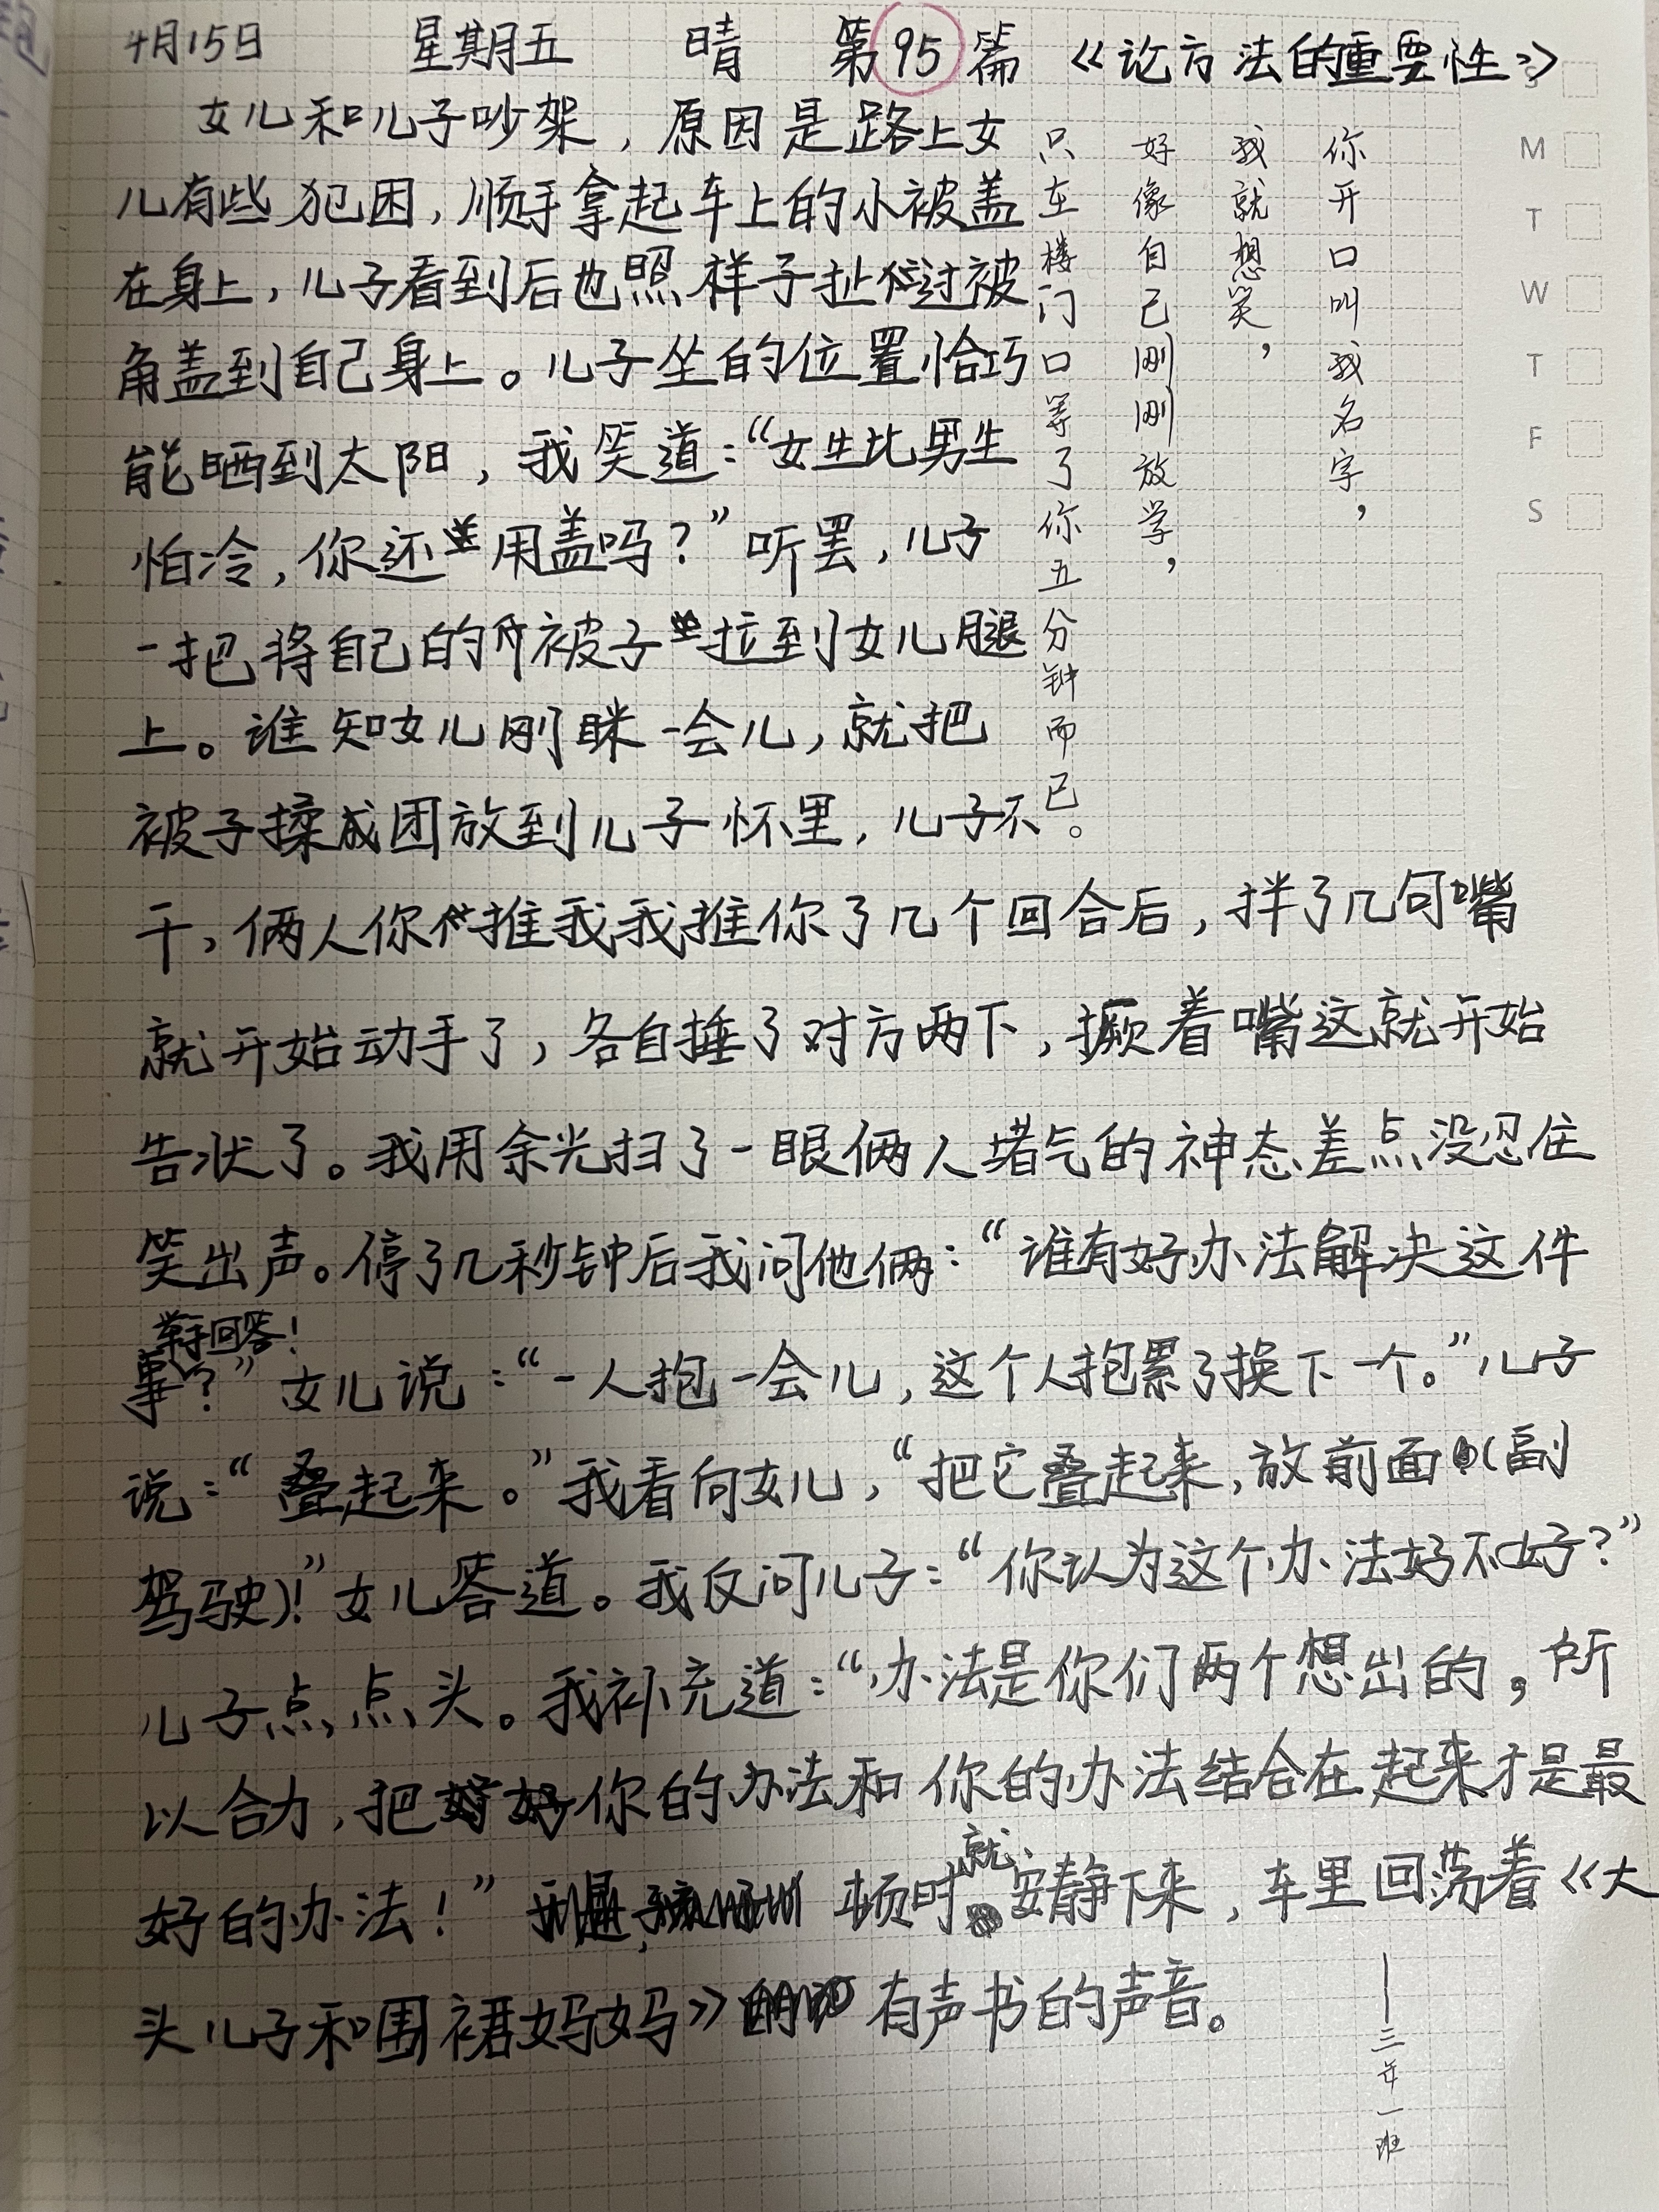 4月15日 星期五 晴 第95篇 《论方法的重要性》
女儿和儿子吵架，原因是路上女
儿有些犯困，顺手拿起车上的小被盖
在身上，儿子看到后也照样子扯过被
角盖到自己身上。儿子坐的位置恰巧
能晒到太阳，我笑道：“女生比男生
怕冷，你还用盖吗？”听罢，儿子
一把将自己的被子拉到女儿腿
上。谁知女儿刚眯一会儿，就把
被子揉成团放到儿子怀里，儿子不
干，俩人你推我我推你了几个回合后，拌了几句嘴
就开始动手了，各自捶了对方两下，撅着嘴这就开始
告状了。我用余光扫了一眼俩人堵气的神态差点没忍住
笑出声。停了几秒钟后我问他俩：“谁有好办法解决这件
举手回答！
事？”女儿说：“一人抱一会儿，这个人抱累了换下一个。”儿子
说：“叠起来。”我看向女儿，“把它叠起来，放前面（副
驾驶）！”女儿答道。我反问儿子：“你认为这个办法好不好？”
儿子点点头。我补充道：“办法是你们两个想出的，所
以合力，把你的办法和你的办法结合在起来才是最
好的办法！”顿时就安静下来，车里回荡着《大
头儿子和围裙妈妈》有声书的声音。
你开口叫我名字，
我就想笑，
好像自己刚刚放学，
只在楼门口等了你五分钟而已。
——三年一班